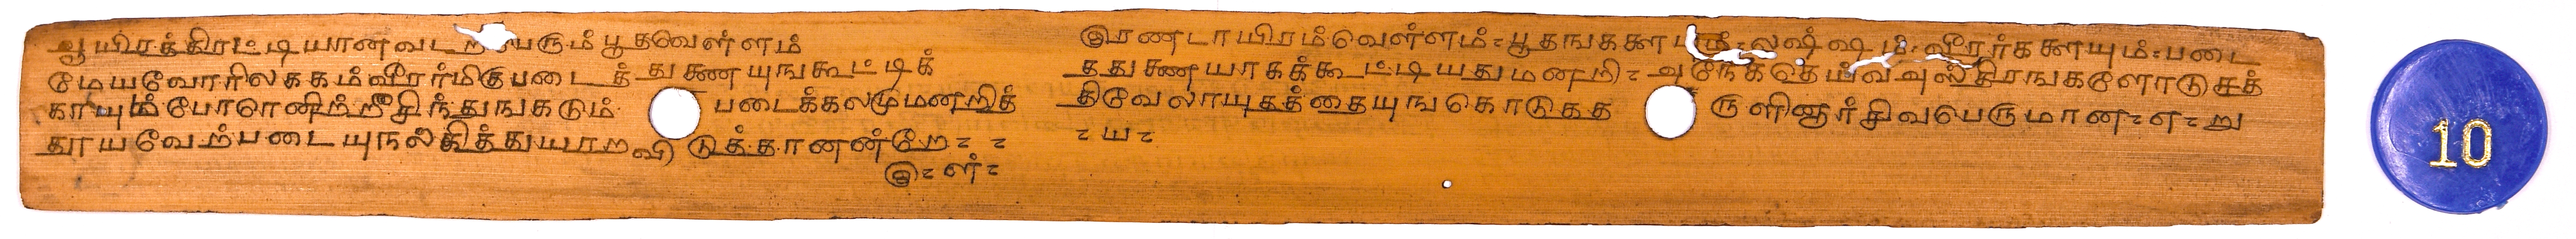 ஆயிரத்திரட்டியானவடற் பெரும்பூதவெள்ளம்
மேயவோரிலககம்வீரர்மிகுபடைத்துணையுஙகூட்டிக்
காயும்போரானிற்றீசிந்துஙகடும் படைக்கலமுமனறித்
தூயவேற்படையுநல்கித்துயரற விடுத்தானன்றே- -
இ- ள்-
இரணடாயிரம்வெள்ளம்-பூதஙகளா லஷ்ஷம்-வீரர்களையும்-படை
ததுணையாகக்கூட்டியதுமனறி- அநேகதெய்வஅஸ்திரஙகளோடுசத்
திவேலாயுதத்தையுஙகொடுதத ருளினார்சிவபெருமான-எ-று
- ய-
10